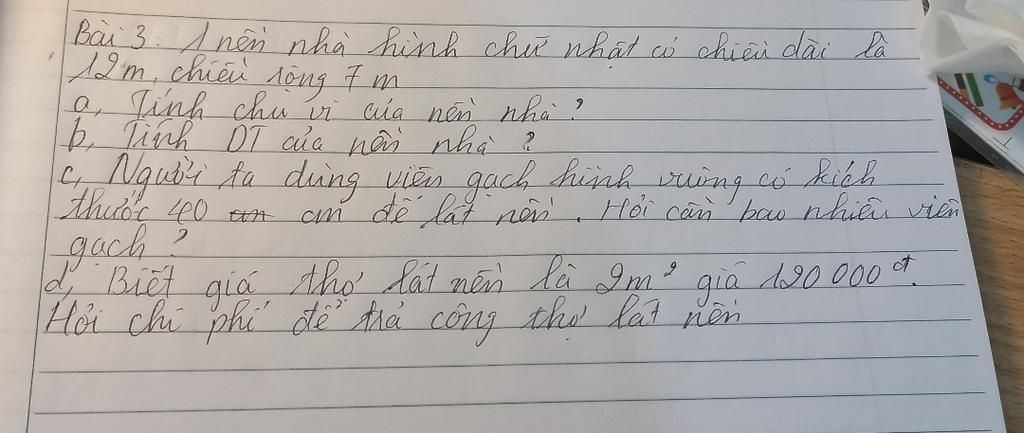 Bài 3: 1 nền nhà hình chữ nhật có chiều dài là
12m, chiều rộng 7m
a, Tính chu vi của nền nhà?
b, Tính DT của nền nhà?
c, Người ta dùng viên gạch hình vuông có kích
thước 40 cm để lát nền. Hỏi cần bao nhiêu viên
gạch?
d, Biết giá thợ lát nền là 2m² giá 120 000đ.
Hỏi chi phí để trả công thợ lát nền